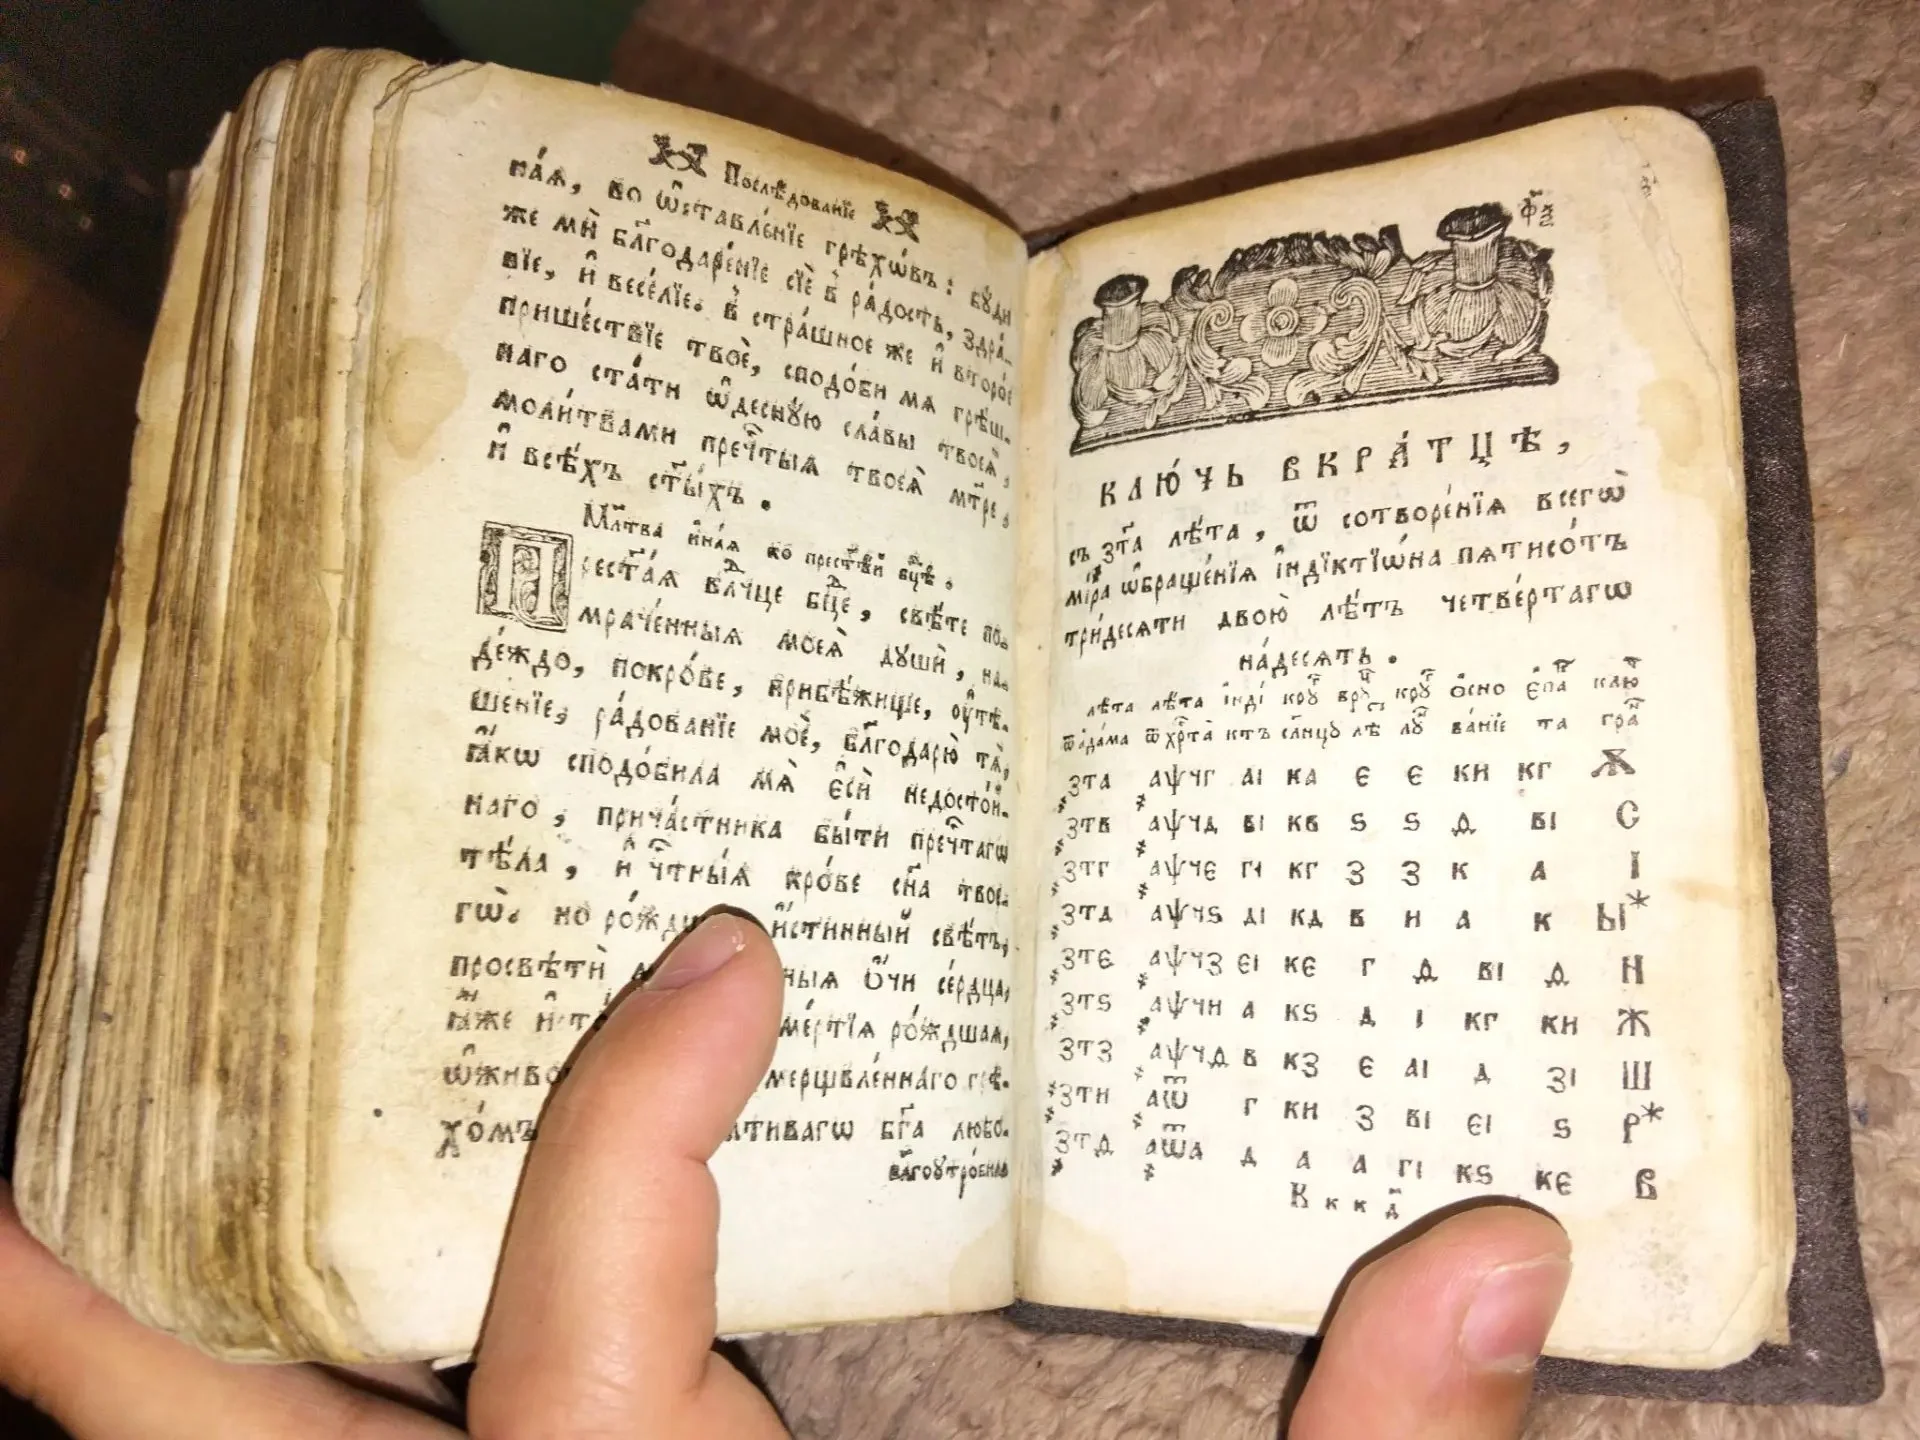 Послѣдованїе
ная́, во ѡ҆ставле́нїе грѣхѡ́въ: бꙋ́ди
же мѝ бл҃годаре́нїе сїѐ в҆ ра́дость, здра́-
вїе, и҆ весе́лїе. в҆ стра́шное же и҆ второ́е
прише́ствїе твоѐ, сподо́би мѧ грѣ́ш-
наго ста́ти ѡ҆деснꙋ́ю сла́вы твоеѧ̀,
моли́твами преч҃тыѧ твоеѧ̀ мт҃ре,
и҆ всѣ́хъ ст҃ы́хъ.
Мл҃тва и҆на́ѧ ко прест҃ѣй бц҃ѣ.
Прест҃а́ѧ влⷣчце бцⷣе, свѣ́те по-
мраче́нныѧ моеѧ̀ дꙋшѝ, на-
де́ждо, покро́ве, прибѣ́жище, оу҆тѣ-
ше́нїе, ра́дованїе моѐ, бл҃годарю̀ тѧ̀,
ꙗ҆́кѡ сподо́била мѧ̀ є҆сѝ недосто́й-
наго, прича́стника бы́ти преч҃тагѡ
тѣ́ла, и҆ ч҃тны́ѧ кро́ве сн҃а твое-
гѡ̀. но ро́жд и҆́стинный свѣ́тъ,
просвѣтѝ ныѧ ѻ҆́чи се́рдца,
ꙗ҆́же ме́ртїѧ ро́ждшаѧ,
ѡ҆живо мерщвле́ннаго грѣ-
хо́мъ тивагѡ бг҃а любо-
бл҃гоꙋтро́бнаѧ
КЛЮ́ЧЬ ВКРА́ТЦѢ,
съ ҂зт҃а лѣ́та, ѿ сотворе́нїѧ всегѡ̀
мі́ра ѡ҆браще́нїѧ і҆ндїктїѡ́на пѧтисо́тъ
три́десѧти двою̀ лѣ́тъ четве́ртагѡ
на́десѧть.
лѣта лѣта і҆нді крꙋ́г врꙋ́ц крꙋ́г ѻсно є҆па́к клю́ч
ѿада́ма ѿхрⷭ҇та̀ ктъ сл҃нцꙋ лѣ лꙋн ва́нїе та гра́н
҂зта ҂аѱчг аі ка є є ки кг Ѫ
҂зтв ҂аѱчд ві кв ѕ ѕ ѳ ві С
҂зтг ҂аѱчє гі кг з з к а І
҂зтд ҂аѱчѕ ді кд в и а к Ы*
҂зтє ҂аѱчз єі кє г ѳ ві ѳ Н
҂зтѕ ҂аѱчи а кѕ д і кг ки Ж
҂зтз ҂аѱчѳ в кз є аі д зі Ш
҂зти ҂аѿ г ки з ві єі ѕ Р*
҂зтѳ ҂аѿа д а а гі кѕ кє В
К к к д҃